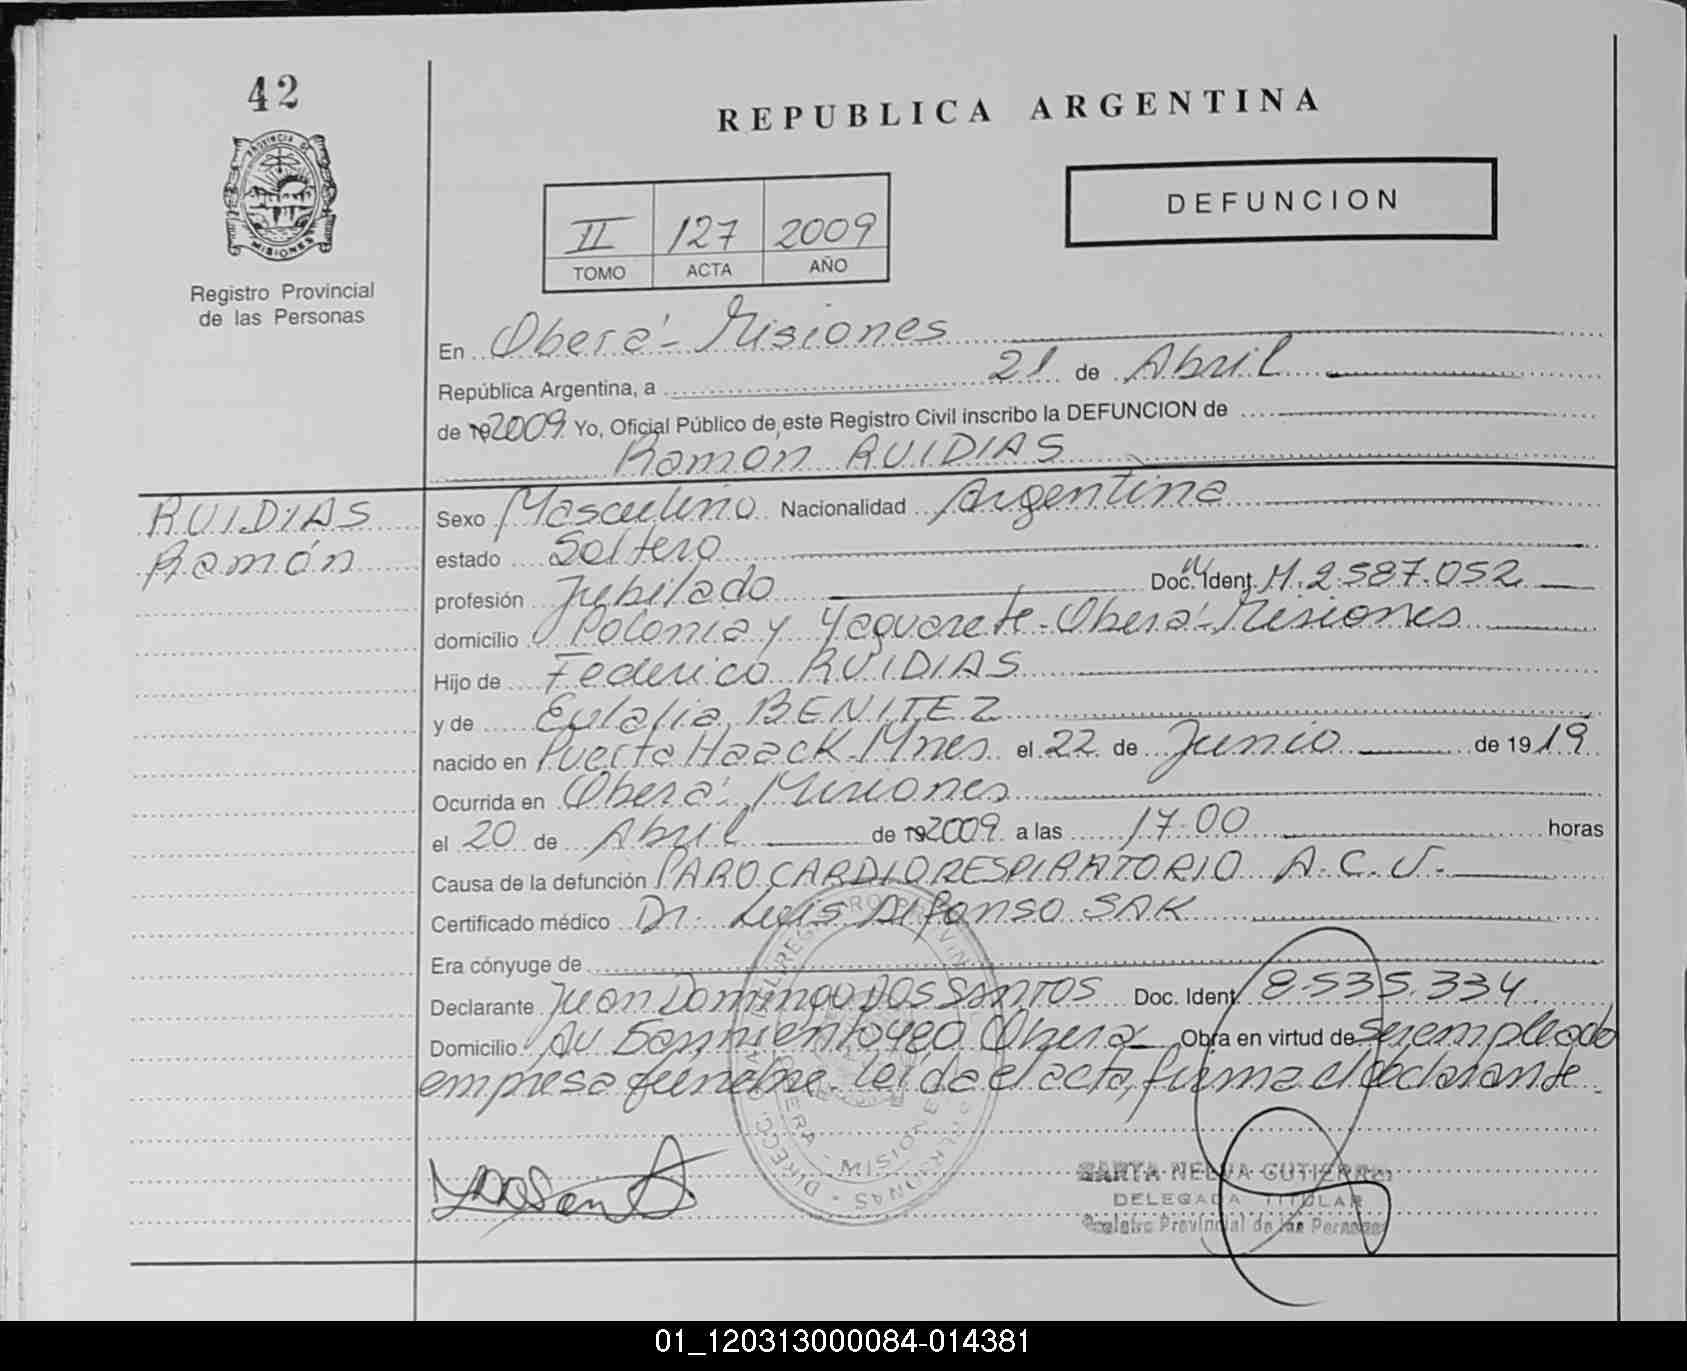 42
PROVINCIA DE
MISIONES
Registro Provincial
de las Personas
REPUBLICA ARGENTINA
DEFUNCION
II 127 2009
TOMO ACTA AÑO
En Oberá - Misiones
República Argentina, a 21 de Abril
de 192009 Yo, Oficial Público de este Registro Civil inscribo la DEFUNCION de
Ramón RUIDIAS
RUIDIAS
Ramón
Sexo Masculino Nacionalidad Argentina
estado Soltero
profesión Jubilado Doc. Ident. M. 2.587.052
domicilio Polonia y Yaguarete - Oberá - Misiones
Hijo de Federico RUIDIAS
y de Eulalia BENITEZ
nacido en Puerto Haack - Mnes el 22 de Junio de 1919
Ocurrida en Oberá - Misiones
el 20 de Abril de 192009 a las 17.00 horas
Causa de la defunción PARO CARDIORESPIRATORIO A.C.V.
Certificado médico Dr. Luis Alfonso SAK
Era cónyuge de
Declarante Juan Domingo DOS SANTOS Doc. Ident. 8.535.334
Domicilio Av Sarmiento 480 Oberá Obra en virtud de Ser empleado
empresa fúnebre. Leída el acta, firma el declarante
MISIONES
GUTIERREZ
DELEGADA TITULAR
Registro Provincial de las Personas
01_120313000084-014381